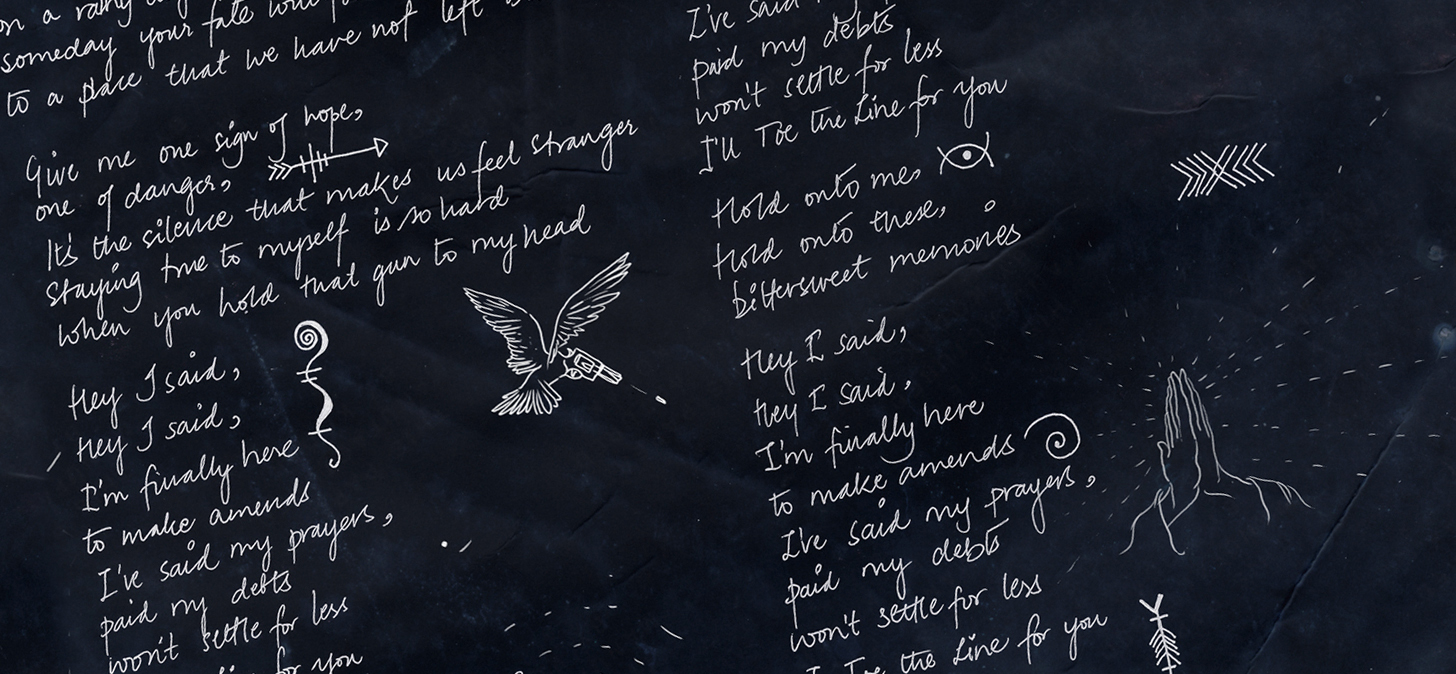 on a rainy
someday your fate
to a place that we have not left
Give me one sign of hope,
one of danger,
It's the silence that makes us feel stranger
Staying true to myself is so hard
when you hold that gun to my head
Hey I said,
Hey I said,
I'm finally here
to make amends
I've said my prayers,
paid my debts
won't settle for less
for you
I've said
paid my debts
won't settle for less
I'll Toe the Line for you
Hold onto me,
Hold onto these,
bittersweet memories
Hey I said,
Hey I said,
I'm finally here
to make amends
I've said my prayers,
paid my debts
won't settle for less
Toe the Line for you